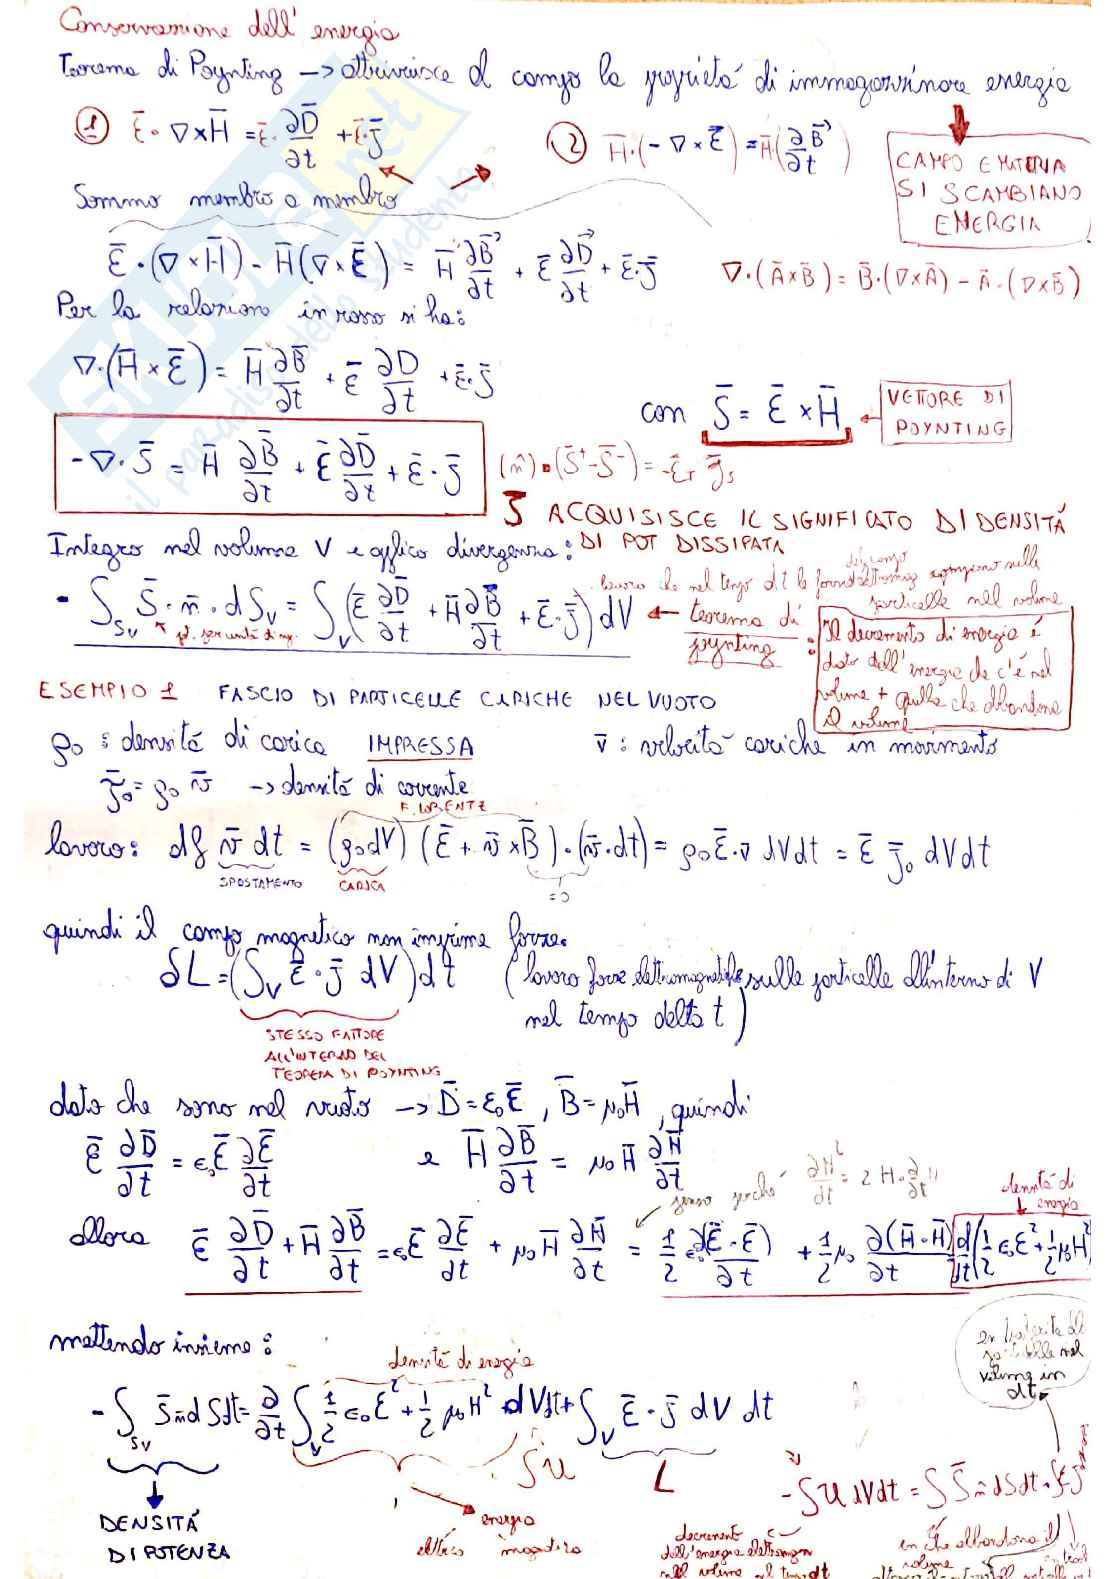 Conservazione dell'energia
Teorema di Poynting → attribuisce al campo la proprietà di immagazzinare energia
① Ē · ∇×H̄ = Ē · ∂D̄/∂t + Ē·J̄
② H̄·(-∇×Ē) = H̄(∂B̄/∂t)
CAMPO E MATERIA
SI SCAMBIANO
ENERGIA
Sommo membro a membro
Ē·(∇×H̄) - H̄(∇×Ē) = H̄ ∂B̄/∂t + Ē ∂D̄/∂t + Ē·J̄
∇·(Ā×B̄) = B̄·(∇×Ā) - Ā·(∇×B̄)
Per la relazione in rosso si ha:
∇·(H̄×Ē) = H̄ ∂B̄/∂t + Ē ∂D/∂t + Ē·J̄
con S̄ = Ē×H̄ ← VETTORE DI
POYNTING
-∇·S̄ = H̄ ∂B̄/∂t + Ē ∂D̄/∂t + Ē·J̄
(n̂)·(S̄⁺-S̄⁻) = -Ēτ J̄s
S ACQUISISCE IL SIGNIFICATO DI DENSITÁ
DI POT DISSIPATA
Integro nel volume V e applico divergenza:
- ∫Sv S̄·n̄·dSv = ∫V (Ē ∂D̄/∂t + H̄ ∂B̄/∂t + Ē·J̄) dV ← teorema di
poynting
lavoro che nel tempo dt le forze del campo elettromag compiono sulle
particelle nel volume
: Il decremento di energia é
dato dall'energia che c'é nel
volume + quella che abbandona
il volume
ESEMPIO 1 FASCIO DI PARTICELLE CARICHE NEL VUOTO
ρ0 : densitá di carica IMPRESSA
v̄ : velocitá cariche in movimento
J̄0 = ρ0 v̄ → densitá di corrente
F. LORENTZ
lavoro: df v̄ dt = (ρ0 dV)(Ē + v̄×B̄)·(v̄·dt) = ρ0 Ē·v̄ dVdt = Ē J̄0 dVdt
SPOSTAMENTO
CARICA
=0
quindi il campo magnetico non imprime forze.
δL = (∫V Ē·J̄ dV) dt
(lavoro forze elettromagnetiche sulle particelle all'interno di V
nel tempo delta t)
STESSO FATTORE
ALL'INTERNO DEL
TEOREMA DI POYNTING
dato che sono nel vuoto → D̄ = ε0Ē, B̄ = μ0H̄, quindi
Ē ∂D̄/∂t = ε0 Ē ∂Ē/∂t e H̄ ∂B̄/∂t = μ0 H̄ ∂H̄/∂t
∂H²/∂t = 2 H·∂/∂t H
densitá di
energia
allora Ē ∂D̄/∂t + H̄ ∂B̄/∂t = ε0 Ē ∂Ē/∂t + μ0 H̄ ∂H̄/∂t = 1/2 ε0 ∂(Ē·Ē)/∂t + 1/2 μ0 ∂(H̄·H̄)/∂t d/dt(1/2 ε0 E² + 1/2 μ0 H²
mettendo insieme:
densitá di energia
- ∫Sv S̄ n̄ d S dt = ∂/∂t ∫V 1/2 ε0 E² + 1/2 μ0 H² dVdt + ∫V Ē·J̄ dV dt
∫u
L
DENSITÁ
DI POTENZA
energia
elettrica magnetica
volume in
dt
- ∫u dVdt = ∫ S̄ n̄ dSdt
decremento
dell'energia elettromagn
nel volume nel tempo dt
en che abbandona il
volume